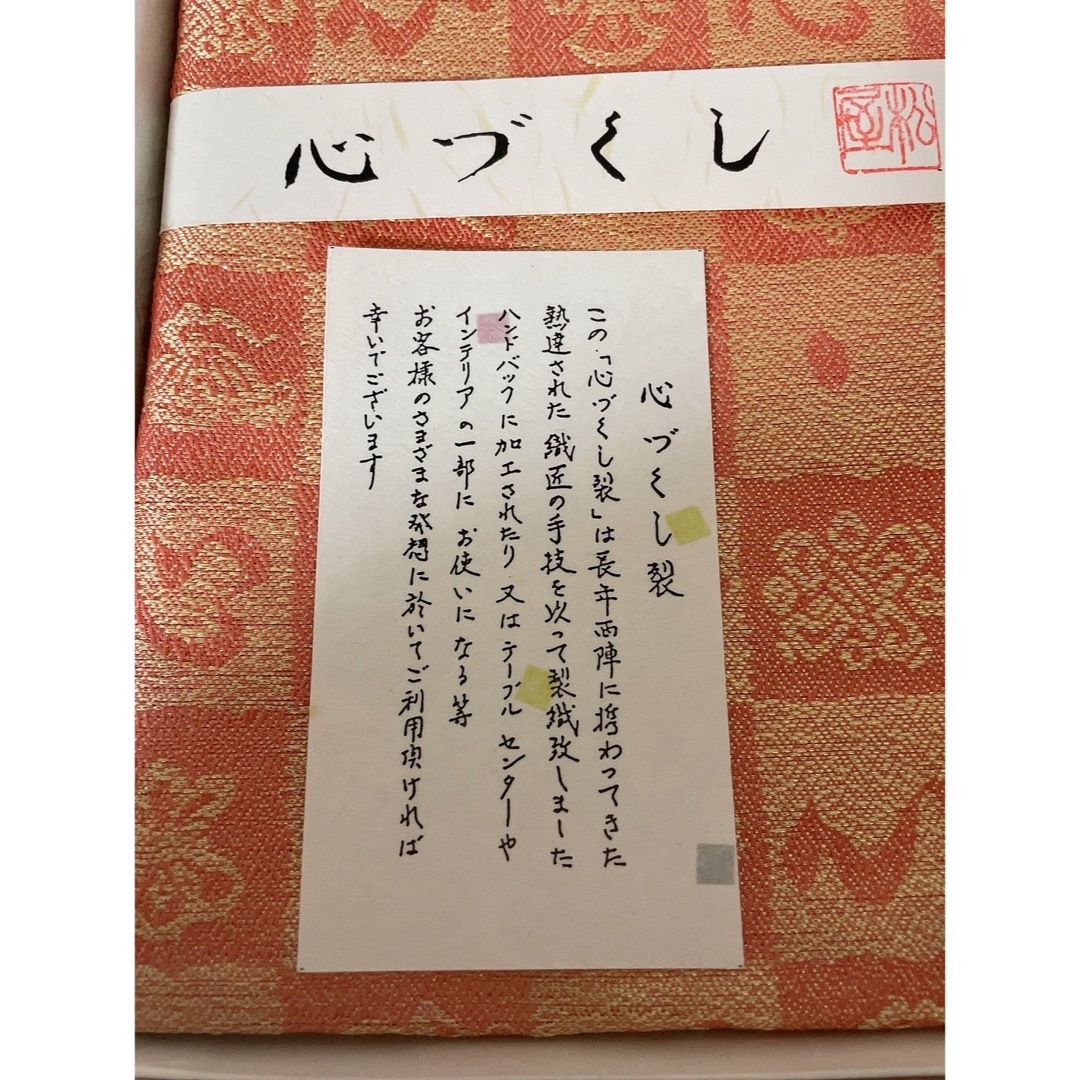 心づくし
松屋
心づくし裂
この「心づくし裂」は長年西陣に携わってきた
熟達された織匠の手技を以って製織致しました
ハンドバックに加工されたり又はテーブルセンターや
インテリアの一部にお使いになる等
お客様のさまざまな発想に於いてご利用頂ければ
幸いでございます